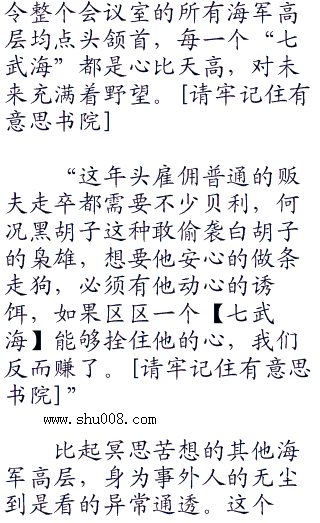 令整个会议室的所有海军高
层均点头颌首，每一个“七
武海”都是心比天高，对未
来充满着野望。[请牢记住有
意思书院]
“这年头雇佣普通的贩
夫走卒都需要不少贝利，何
况黑胡子这种敢偷袭白胡子
的枭雄，想要他安心的做条
走狗，必须有他动心的诱
饵，如果区区一个【七武
海】能够拴住他的心，我们
反而赚了。[请牢记住有意思
书院]”
www.shu008.com
比起冥思苦想的其他海
军高层，身为事外人的无尘
到是看的异常通透。这个